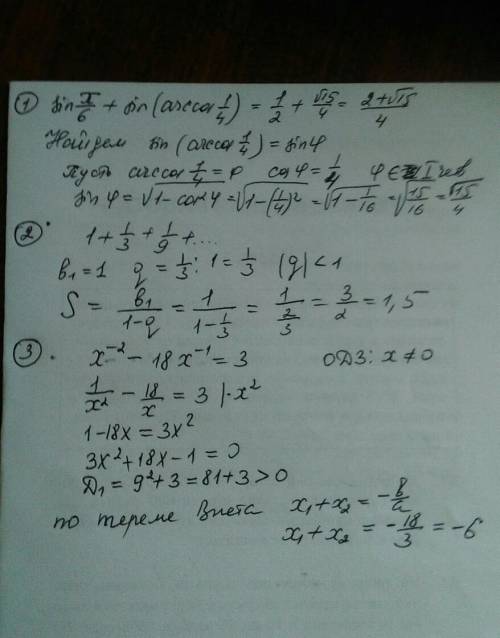 ① sin π/6 + sin (arccos 1/4) = 1/2 + √15/4 = (2+√15)/4
Найдем sin (arccos 1/4) = sin φ
Пусть arccos 1/4 = φ cos φ = 1/4 φ ∈ I чев
sin φ = √(1 - cos² φ) = √(1-(1/4)²) = √(1 - 1/16) = √(15/16) = √15/4
② 1 + 1/3 + 1/9 + ....
b₁ = 1 q = 1/3 : 1 = 1/3 |q| < 1
S = b₁/(1-q) = 1/(1 - 1/3) = 1/(2/3) = 3/2 = 1,5
③ x⁻² - 18 x⁻¹ = 3 ОДЗ: x ≠ 0
1/x² - 18/x = 3 | · x²
1 - 18x = 3x²
3x² + 18x - 1 = 0
Д₁ = 9² + 3 = 81 + 3 > 0
по тереме Виета x₁ + x₂ = - b/a
x₁ + x₂ = - 18/3 = - 6